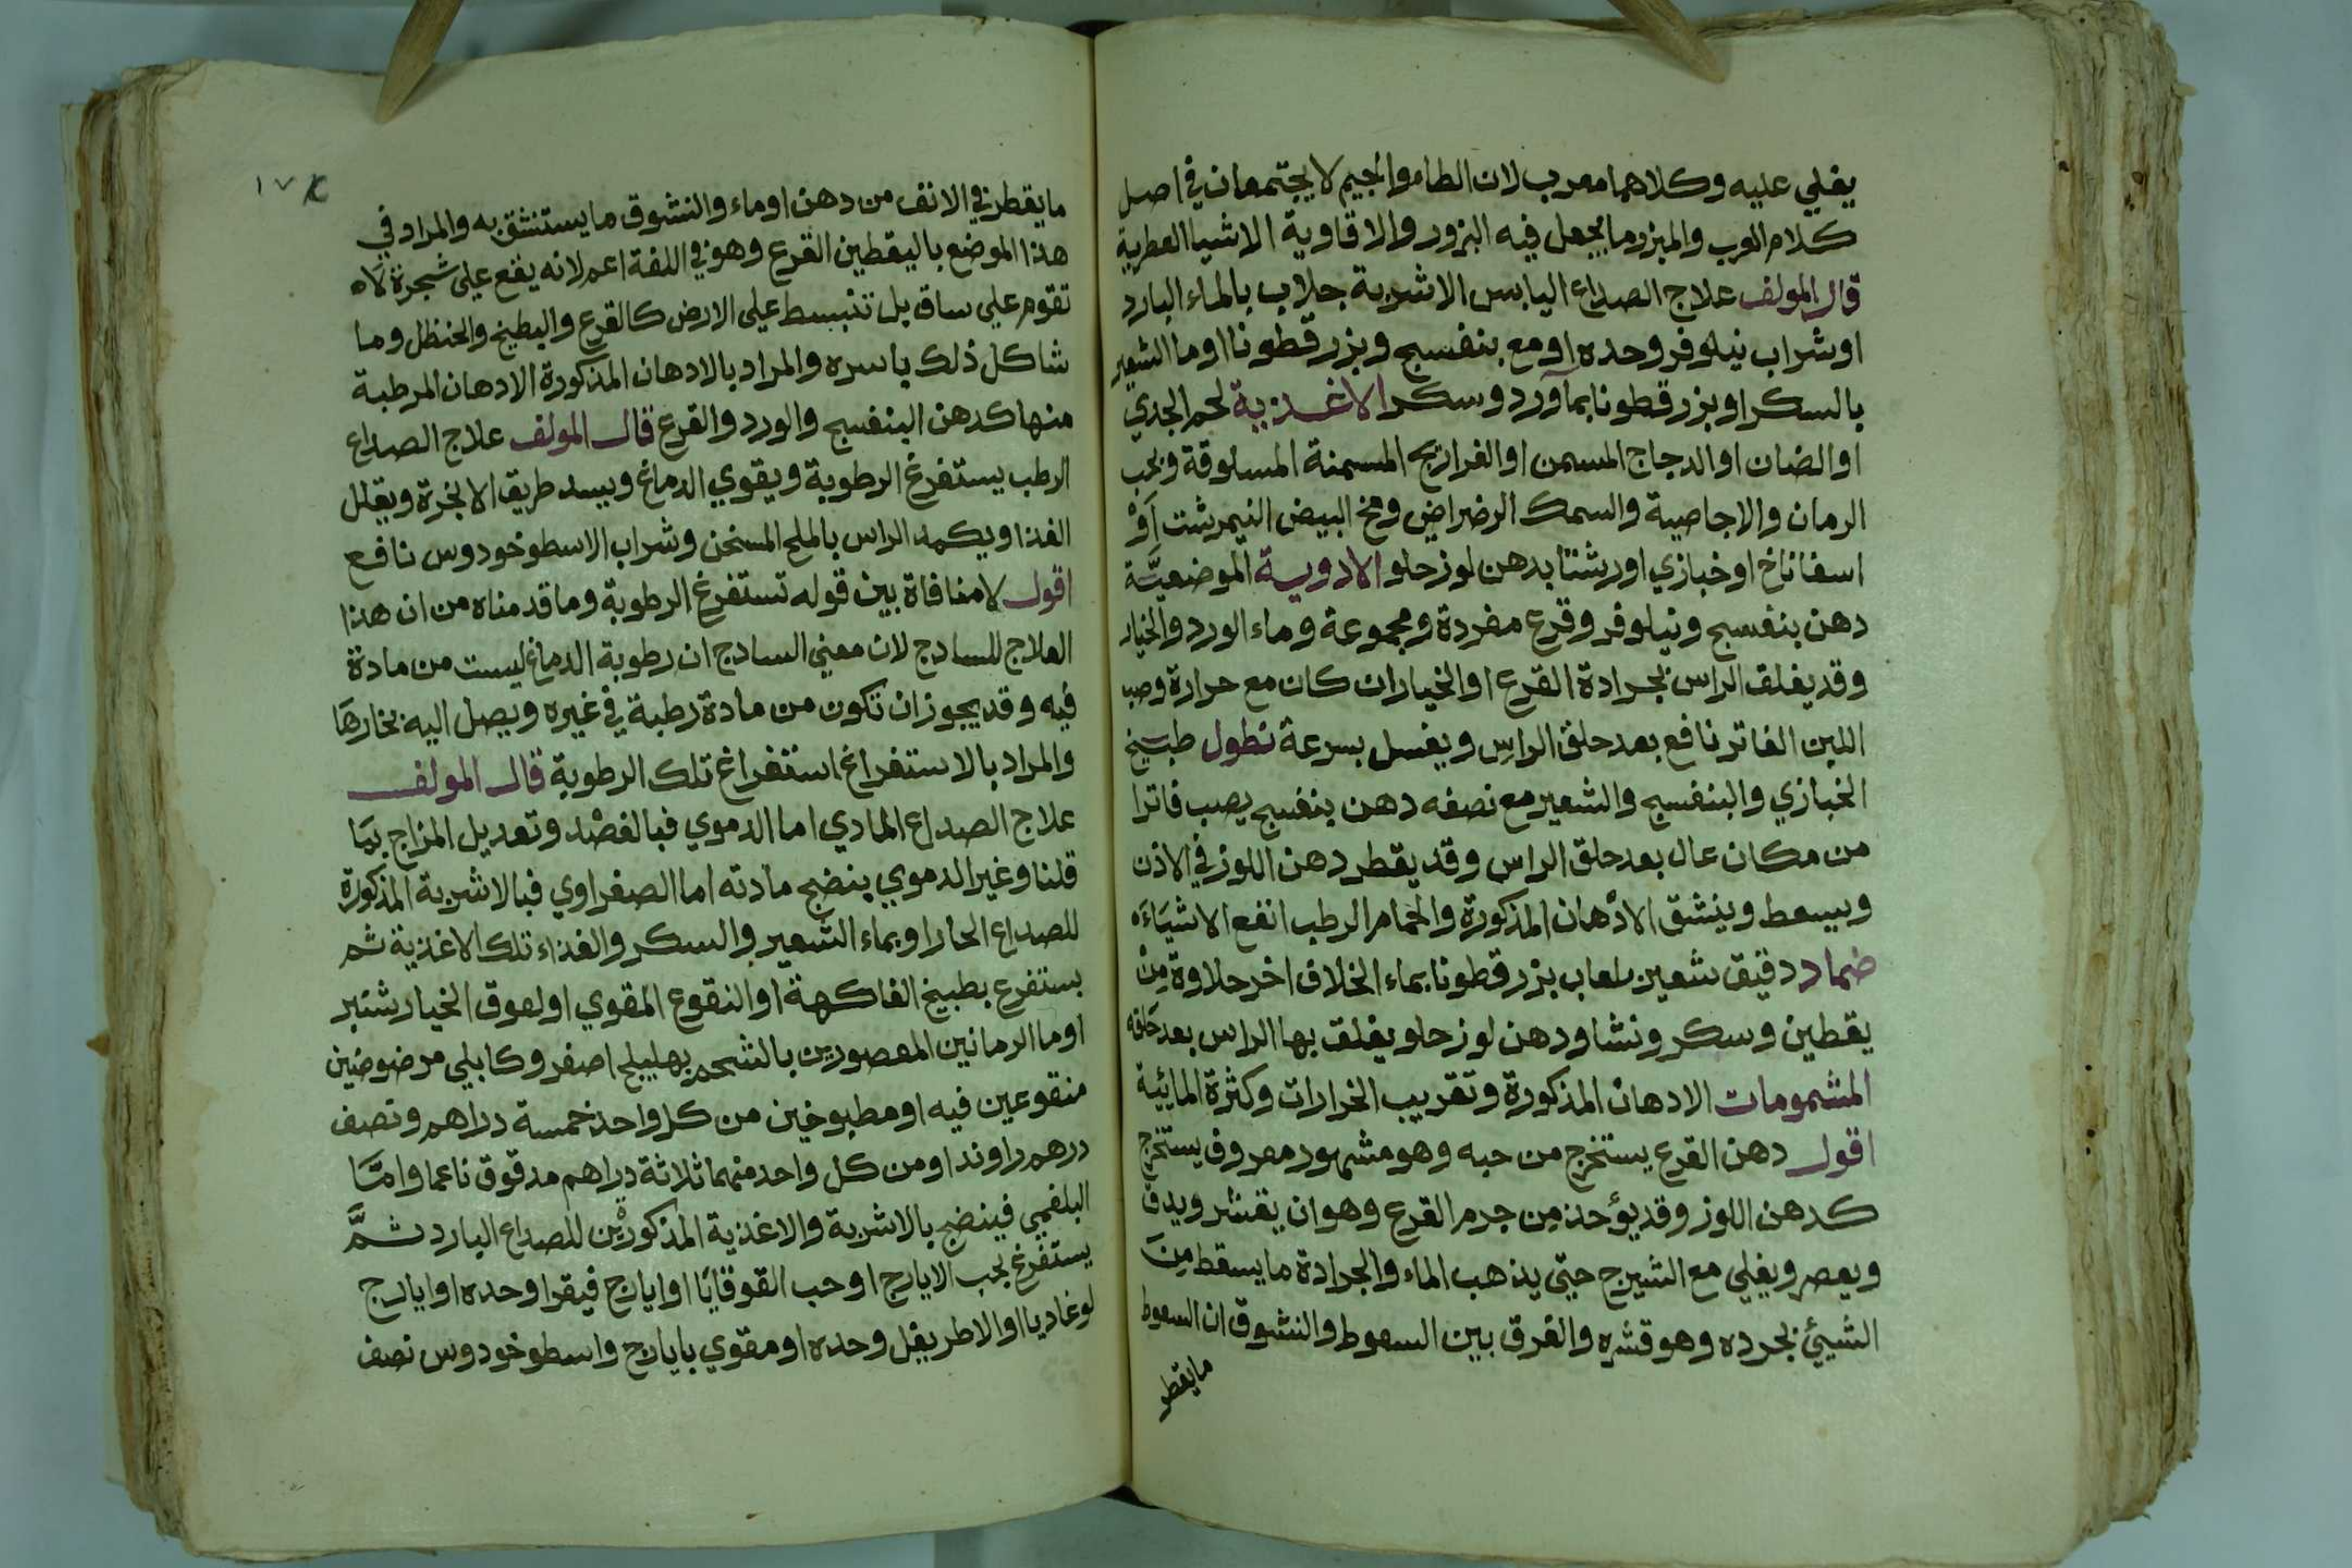 يغلي عليه وكلاهما معرب لان الطاء والجيم لا يجتمعان في اصل
كلام العرب والمبزر ما يجعل فيه البزور والاقاوية الاشيا العطرية
قال المولف علاج الصداع اليابس الاشربة جلاب بالماء البارد
او شراب نيلوفر وحده او مع بنفسج وبزر قطونا او ما الشعير
بالسكر او بزر قطونا بمآورد وسكر الاغذية لحم الجدي
او الضان او الدجاج المسمن او الفراريج المسمنة المسلوقة وبحب
الرمان والاجاصية والسمك الرضراضي ومخ البيض النيمرشت اَوْ
اسفاناخ او خبازي او رشتا بدهن لوز حلو الادوية الموضعيَّة
دهن بنفسج ونيلوفر وقرع مفردة ومجموعة وماء الورد والخيار
وقد يغلف الراس بجرادة القرع او الخيار ان كان مع حرارة وصب
اللبن الفاتر نافع بعد حلق الراس ويغسل بسرعة نطول طبيخ
الخبازي والبنفسج والشعير مع نصفه دهن بنفسج يصب فاترا
من مكان عال بعد حلق الراس وقد يقطر دهن اللوز في الاذن
ويسعط وينشق الادْهان المذكورة والحمام الرطب انفع الاشيَاءَ
ضماد دقيق شعير بلعاب بزر قطونا بماء الخلاف اخر حلاوة مِنْ
يقطين وسكر ونشا ودهن لوز حلو يغلف بها الراس بعد حَلقه
المشمومات الادهان المذكورة وتقريب الخرارات وكثرة المائية
اقول دهن القرع يستخرج من حبه وهو مشهور معروف يستخرج
كدهن اللوز وقد يؤخذ من جرم القرع وهو ان يقشر ويدق
ويعصر ويغلي مع الشيرج حتى يذهب الماء والجرادة ما يسقط مِنَ
الشيئ بجرده وهو قشره والفرق بين السعوط والنشوق ان السعوط
ما يقطر
١٧٤
ما يقطر في الانف من دهن او ماء والنشوق ما يستنشق به والمراد في
هذا الموضع باليقطين القرع وهو في اللغة اعم لانه يقع على شجرة لاه
تقوم علي ساق بل تنبسط علي الارض كالقرع والبطيخ والحنظل وما
شاكل ذلك باسره والمراد بالادهان المذكورة الادهان المرطبة
منها كدهن البنفسج والورد والقرع قال المولف علاج الصداع
الرطب يستفرغ الرطوبة ويقوي الدماغ ويسد طريق الابخرة ويقلل
الغذا ويكمد الراس بالملح المسخن وشراب الاسطوخودوس نافع
اقول لا منافاة بين قوله تستفرغ الرطوبة وما قدمناه من ان هذا
العلاج للسادج لان معني السادج ان رطوبة الدماغ ليست من مادة
فيه وقد يجوز ان تكون من مادة رطبة في غيره ويصل اليه بخارهَا
والمراد بالاستفراغ استفراغ تلك الرطوبة قال المولف
علاج الصداع المادي اما الدموي فبالفصْد وتعديل المزاج بمَا
قلنا وغير الدموي ينضج مادته اما الصفراوي فبالاشربة المذكورة
للصداع الحار او بماء الشعير والسكر والغذاء تلك الاغذية ثم
يستفرغ بطبيخ الفاكهة او النقوع المقوي او لعوق الخيار شنبر
او ما الرمانين المعصورين بالشحم بهليلج اصفر وكابلي مرضوضين
منقوعين فيه او مطبوخين من كل واحد خمسة دراهم ونصف
درهم راوند او من كل واحد منهما ثلاثة دراهم مدقوق ناعما وامَّا
البلغمي فينضج بالاشربة والاغذية المذكورْيَن للصداع البارد ثمَّ
يستفرغ بحب الايارج او حب القوقايَا او ايارج فيقرا وحده او ايارج
لوغاديا او الاطريفل وحده او مقوي بايارج واسطوخودوس نصف